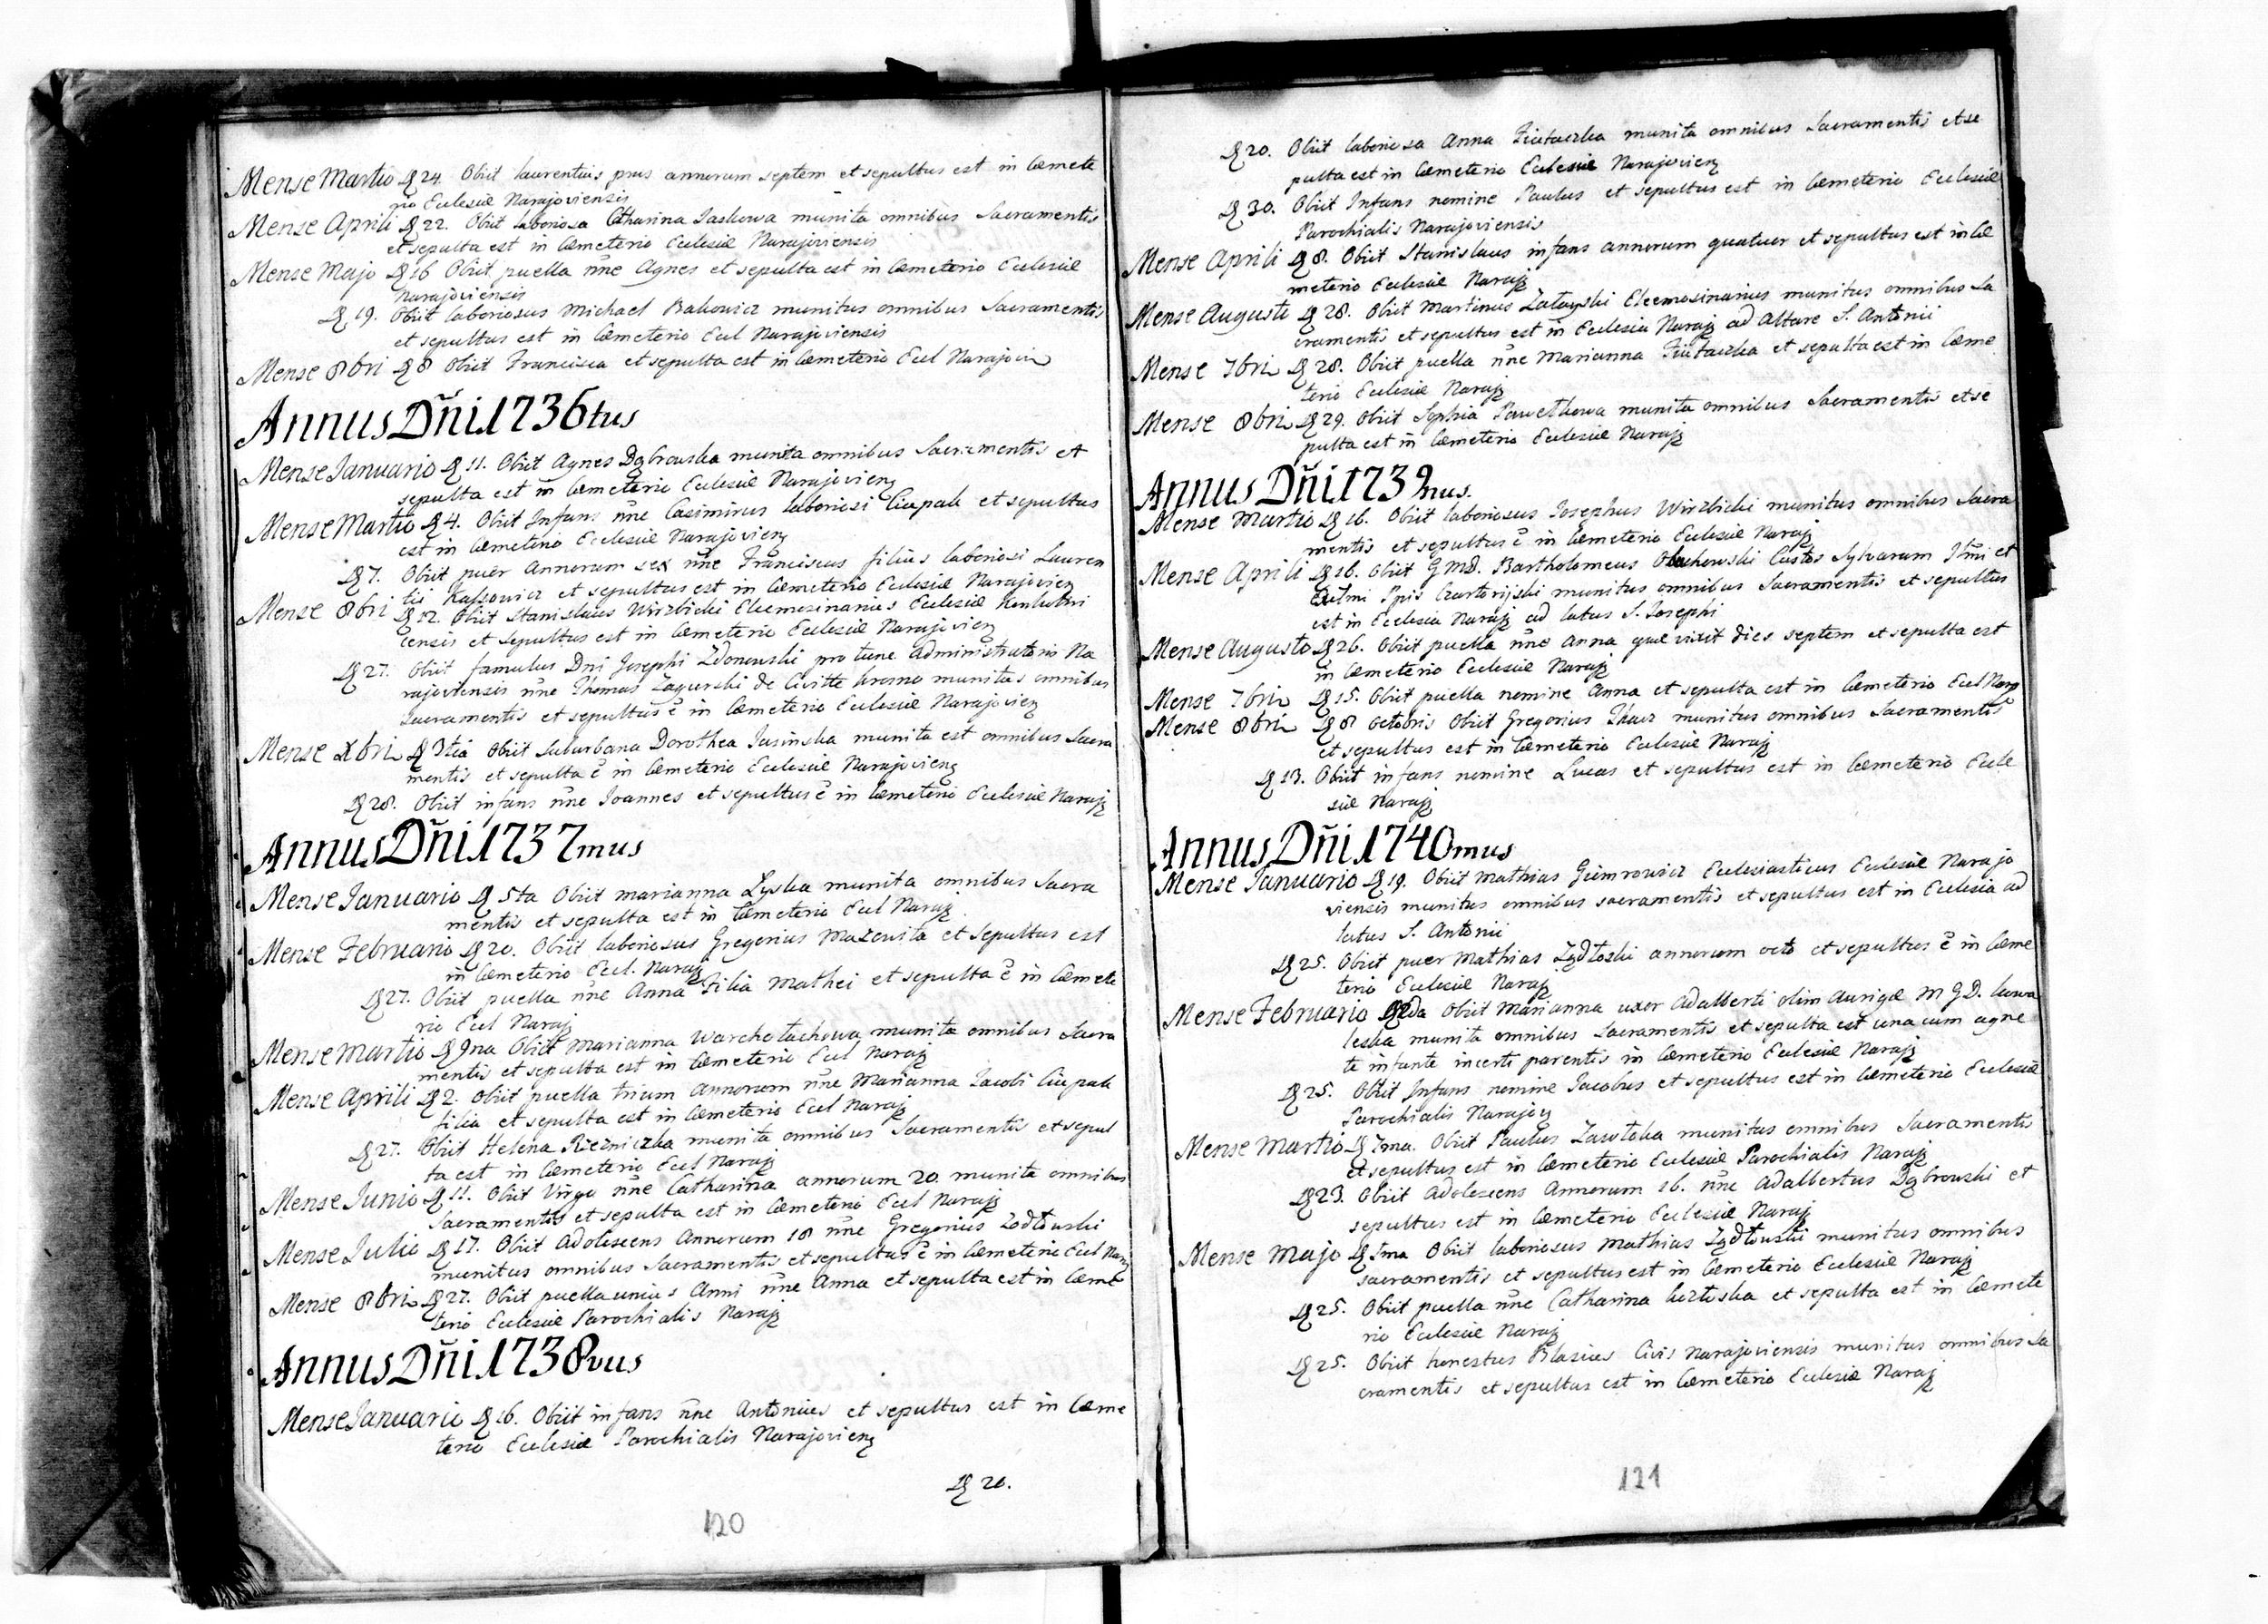 Mense Martio D 24. Obiit Laurentius puer annorum septem et sepultus est in Cæmete
rio Ecclesiæ Narajoviensis
Mense Aprili D 22. Obiit laboriosa Catharina Jaskowa munita omnibus Sacramentis
et sepulta est in Cæmeterio Ecclesiæ Narajoviensis
Mense Majo D 16 Obiit puella nñe Agnes et sepulta est in Cæmeterio Ecclesiæ
Narajoviensis
D 19. Obiit laboriosus Michael Bakowicz munitus omnibus Sacramentis
et sepultus est in Cæmeterio Eccl Narajoviensis
Mense 8bri D 8 Obiit Francisca et sepulta est in Cæmeterio Eccl Narajovien
Annus Dñi 1736tus
Mense Januario D 11. Obiit Agnes Dąbrowska munita omnibus Sacramentis et
sepulta est in Cæmeterio Ecclesiæ Narajovien
Mense Martio D 4. Obiit Infans nñe Casimirus laboriosi Ciupak et sepultus
est in Cæmeterio Ecclesiæ Narajovien
D 7. Obiit puer Annorum sex nñe Franciscus filius laboriosi Lauren
tii Kassowicz et sepultus est in Cæmeterio Ecclesiæ Narajovien
Mense 8bri D 12. Obiit Stanislaus Wirzbicki Eleemosinarius Ecclesiæ
censis et sepultus est in Cæmeterio Ecclesiæ Narajovien
D 27. Obiit famulus Dni Josephi Zdonowski pro tunc administratoris Na
rajoviensis nñe Thomas Zagurski de Civitte Krosno munitus omnibus
Sacramentis et sepultus ē in Cæmeterio Ecclesiæ Narajovien
Mense Xbri D 3tia Obiit Suburbana Dorothea Jasinska munita est omnibus Sacra
mentis et sepulta ē in Cæmeterio Ecclesiæ Narajovien
D 28. Obiit infans nñe Joannes et sepultus ē in Cæmeterio Ecclesiæ Naraj
Annus Dñi 1737mus
Mense Januario D 5ta Obiit Marianna Lyska munita omnibus Sacra
mentis et sepulta est in Cæmeterio Eccl Naraj
Mense Februario D 20. Obiit laboriosus Gregorius Mazowita et sepultus est
in Cæmeterio Eccl. Naraj
D 27. Obiit puella nñe Anna Filia Mathei et sepulta ē in Cæmete
rio Eccl Naraj
Mense Martio D 9na Obiit Marianna Warchołachowa munita omnibus Sacra
mentis et sepulta est in Cæmeterio Eccl Naraj
Mense Aprili D 2. Obiit puella trium annorum nñe Marianna Jacobi Ciupak
filia et sepulta est in Cæmeterio Eccl Naraj
D 27. Obiit Helena Rzezniczka munita omnibus Sacramentis et sepul
ta est in Cæmeterio Eccl Naraj
Mense Junio D 11. Obiit Virgo nñe Catharina annorum 20. munita omnibus
Sacramentis et sepulta est in Cæmeterio Eccl Naraj
Mense Julio D 17. Obiit Adolescens Annorum 18 nñe Gregorius Zodłowski
munitus omnibus Sacramentis et sepultus ē in Cæmeterio Eccl Nar
Mense 8bri D 27. Obiit puella unius Anni nñe Anna et sepulta est in Cæme
terio Ecclesiæ Parochialis Naraj
Annus Dñi 1738vus
Mense Januario D 16. Obiit infans nñe Antonius et sepultus est in Cæme
terio Ecclesiæ Parochialis Narajovien
D 20.
120
D 20. Obiit laboriosa Anna munita omnibus Sacramentis et se
pulta est in Cæmeterio Ecclesiæ Narajovien
D 30. Obiit Infans nomine Paulus et sepultus est in Cæmeterio Ecclesiæ
Parochialis Narajoviensis
Mense Aprili D 8. Obiit Stanislaus infans annorum quatuor et sepultus est in Cæ
meterio Ecclesiæ Naraj
Mense Augusto D 28. Obiit Martinus Załayski Eleemosinarius munitus omnibus Sa
cramentis et sepultus est in Ecclesia Naraj ad Altare S. Antonii
Mense 7bri D 28. Obiit puella nñe Marianna et sepulta est in Cæme
terio Ecclesiæ Naraj
Mense 8bri D 29. Obiit Sophia Pawełkowa munita omnibus Sacramentis et se
pulta est in Cæmeterio Ecclesiæ Naraj
Annus Dñi 1739nus.
Mense Martio D 16. Obiit laboriosus Josephus Wirzbicki munitus omnibus Sacra
mentis et sepultus ē in Cæmeterio Ecclesiæ Naraj
Mense Aprili D 16. Obiit G M D. Bartholomeus Obuchowski Custos Sylvarum Illmi et
Exclmi Ppis Czartoryjski munitus omnibus Sacramentis et sepultus
est in Ecclesia Naraj ad latus S. Josephi
Mense Augusto D 26. Obiit puella nñe Anna quæ vixit dies septem et sepulta est
in Cæmeterio Ecclesiæ Naraj
Mense 7bri D 15. Obiit puella nomine Anna et sepulta est in Cæmeterio Eccl Naraj
Mense 8bri D 8 octobris Obiit Gregorius Tkacz munitus omnibus Sacramentis
et sepultus est in Cæmeterio Ecclesiæ Naraj
D 13. Obiit infans nomine Lucas et sepultus est in Cæmeterio Eccle
siæ Naraj
Annus Dñi 1740mus
Mense Januario D 19. Obiit Mathias Ecclesiasticus Ecclesiæ Narajo
viensis munitus omnibus sacramentis et sepultus est in Ecclesia ad
latus S. Antonii
D 25. Obiit puer Mathias Zydłoski annorum octo et sepultus ē in Cæme
terio Ecclesiæ Naraj
Mense Februario D 2da Obiit Marianna uxor Adalberti olim Aurigæ M G D. Kowa
leska munita omnibus Sacramentis et sepulta est una cum agne
te infante incerti parentis in Cæmeterio Ecclesiæ Naraj
D 25. Obiit Infans nomine Jacobus et sepultus est in Cæmeterio Ecclesiæ
Parochialis Narajov
Mense Martio D 7ma. Obiit Paulus Zawłoka munitus omnibus Sacramentis
et sepultus est in Cæmeterio Ecclesiæ Parochialis Naraj
D 23. Obiit Adolescens Annorum 16. nñe Adalbertus Dąbrowski et
sepultus est in Cæmeterio Ecclesiæ Naraj
Mense Majo D 1ma Obiit laboriosus Mathias Zydłowski munitus omnibus
sacramentis et sepultus est in Cæmeterio Ecclesiæ Naraj
D 25. Obiit puella nñe Catharina et sepulta est in Cæmete
rio Ecclesiæ Naraj
D 25. Obiit honestus Blasius Civis Narajoviensis munitus omnibus Sa
cramentis et sepultus est in Cæmeterio Ecclesiæ Naraj
121